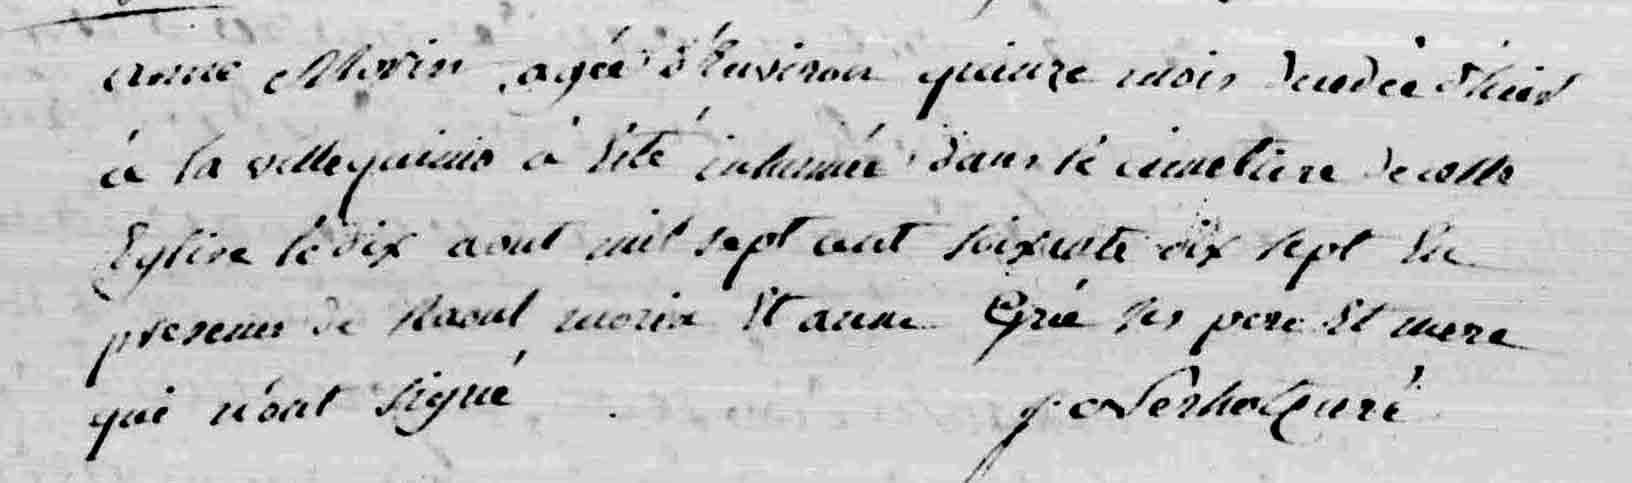 anne Morin agée d'Environ quinze mois decedée d'hier
à la ville quinio à Eté inhumée dans lé cimetiere de cette
Eglise lé dix aout mil sept cent soixante dix sept En
presence de Raoul morin Et anne Gréé ses pere Et mere
qui n'ont signé
curé